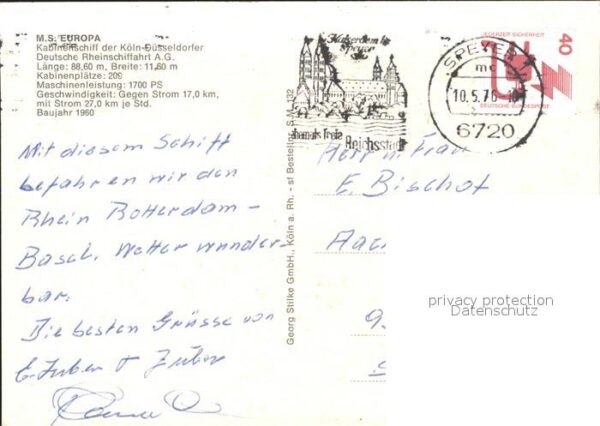 M.S. EUROPA
Kabinenschiff der Köln-Düsseldorfer
Deutsche Rheinschiffahrt A.G.
Länge: 88,60 m, Breite: 11,60 m
Kabinenplätze: 209
Maschinenleistung: 1700 PS
Geschwindigkeit: Gegen Strom 17,0 km,
mit Strom 27,0 km je Std.
Baujahr 1960
Mit diesem Schiff
befahren wir den
Rhein Rotterdam-
Basel. Wetter wunder-
bar.
Die besten Grüsse von
E. Huber + Zuber
Georg Stilke GmbH., Köln a. Rh. - sf Bestellnr. S.M. 132
Kaiserdom
Speyer
freie
Reichsstadt
SPEYER
mc
10.5.76
6720
JEDERZEIT SICHERHEIT
40
DEUTSCHE BUNDESPOST
Herr u. Frau
E. Bischof
Aa
privacy protection
Datenschutz